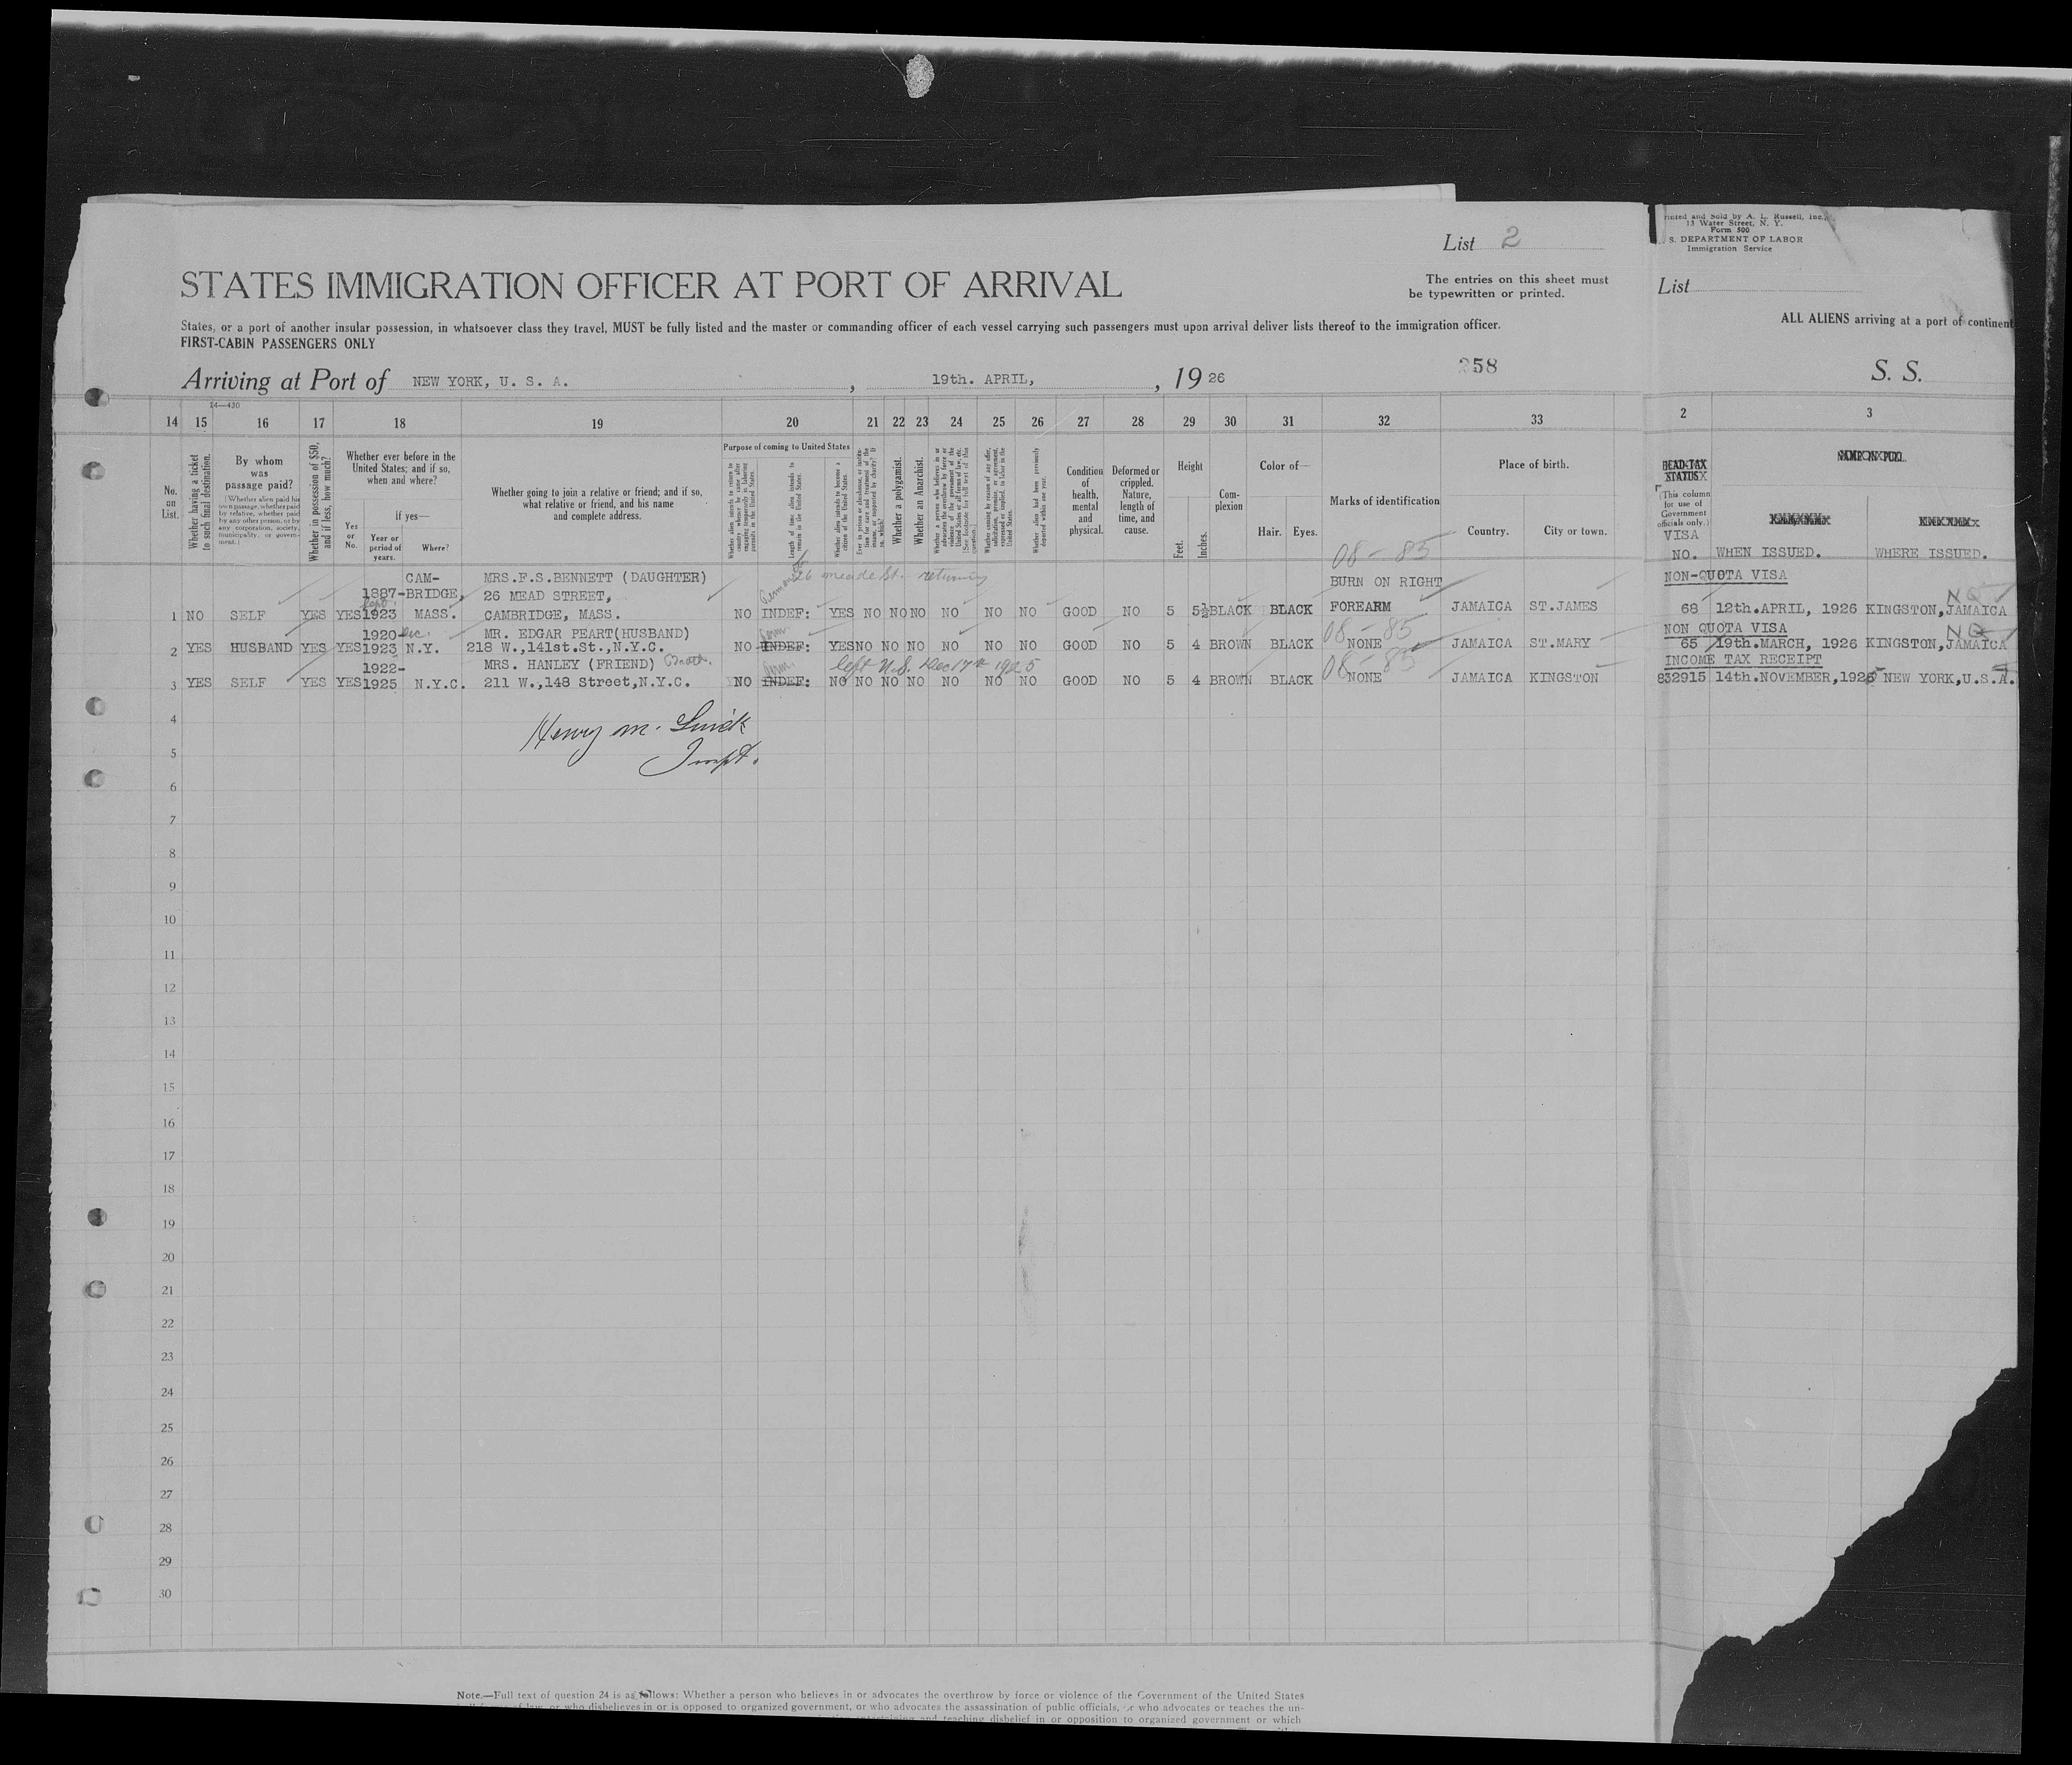 List 2
STATES IMMIGRATION OFFICER AT PORT OF ARRIVAL
The entries on this sheet must
be typewritten or printed.
States, or a port of another insular possession, in whatsoever class they travel, MUST be fully listed and the master or commanding officer of each vessel carrying such passengers must upon arrival deliver lists thereof to the immigration officer.
FIRST-CABIN PASSENGERS ONLY
Arriving at Port of NEW YORK, U. S. A. , 19th. APRIL, , 19 26
358
14—430
14 15 16 17 18 19 20 21 22 23 24 25 26 27 28 29 30 31 32 33
No. on List.
Whether having a ticket to such final destination.
By whom was passage paid?
(Whether alien paid his own passage, whether paid by relative, whether paid by any other person, or by any corporation, society, municipality, or government.)
Whether in possession of $50, and if less, how much?
Whether ever before in the United States; and if so, when and where?
If yes—
Yes or No.
Year or period of years.
Where?
Whether going to join a relative or friend; and if so, what relative or friend, and his name and complete address.
Purpose of coming to United States
Whether alien intends to return to country whence he came after engaging temporarily in laboring pursuits in the United States.
Length of time alien intends to remain in the United States.
Whether alien intends to become a citizen of the United States.
Whether a polygamist.
Whether an Anarchist.
Condition of health, mental and physical.
Deformed or crippled. Nature, length of time, and cause.
Height
Feet. Inches.
Complexion
Color of—
Hair. Eyes.
Marks of identification
Place of birth.
Country. City or town.
08-85
CAM- MRS.F.S.BENNETT (DAUGHTER) 26 meade St. returning BURN ON RIGHT
1887-BRIDGE, 26 MEAD STREET,
Sept.
1 NO SELF YES YES 1923 MASS. CAMBRIDGE, MASS. NO INDEF: YES NO NO NO NO NO NO GOOD NO 5 5½ BLACK BLACK FOREARM JAMAICA ST.JAMES
1920 Dec. MR. EDGAR PEART(HUSBAND) Perm. 08-85
2 YES HUSBAND YES YES 1923 N.Y. 218 W.,141st.St.,N.Y.C. NO INDEF: YES NO NO NO NO NO NO GOOD NO 5 4 BROWN BLACK NONE JAMAICA ST.MARY
1922- MRS. HANLEY (FRIEND) Perm. left U.S. Dec 17th 1925 08-85
3 YES SELF YES YES 1925 N.Y.C. 211 W.,148 Street,N.Y.C. NO INDEF: NO NO NO NO NO NO NO GOOD NO 5 4 BROWN BLACK NONE JAMAICA KINGSTON
4
5
6
7
8
9
10
11
12
13
14
15
16
17
18
19
20
21
22
23
24
25
26
27
28
29
30
Note.—Full text of question 24 is as follows: Whether a person who believes in or advocates the overthrow by force or violence of the Government of the United States
or who disbelieves in or is opposed to organized government, or who advocates the assassination of public officials, or who advocates or teaches the un-
entertaining and teaching disbelief in or opposition to organized government or which
Printed and Sold by A. L. Russell, Inc.,
15 Water Street, N. Y.
Form 500
S. DEPARTMENT OF LABOR
Immigration Service
List
ALL ALIENS arriving at a port of continent
S. S.
2 3
HEAD-TAX STATUS
(This column for use of Government officials only.)
VISA
NO. WHEN ISSUED. WHERE ISSUED.
NON-QUOTA VISA
NQ
68 12th.APRIL, 1926 KINGSTON,JAMAICA
NON QUOTA VISA
NQ
65 19th.MARCH, 1926 KINGSTON,JAMAICA
INCOME TAX RECEIPT
832915 14th.NOVEMBER,1925 NEW YORK,U.S.A.